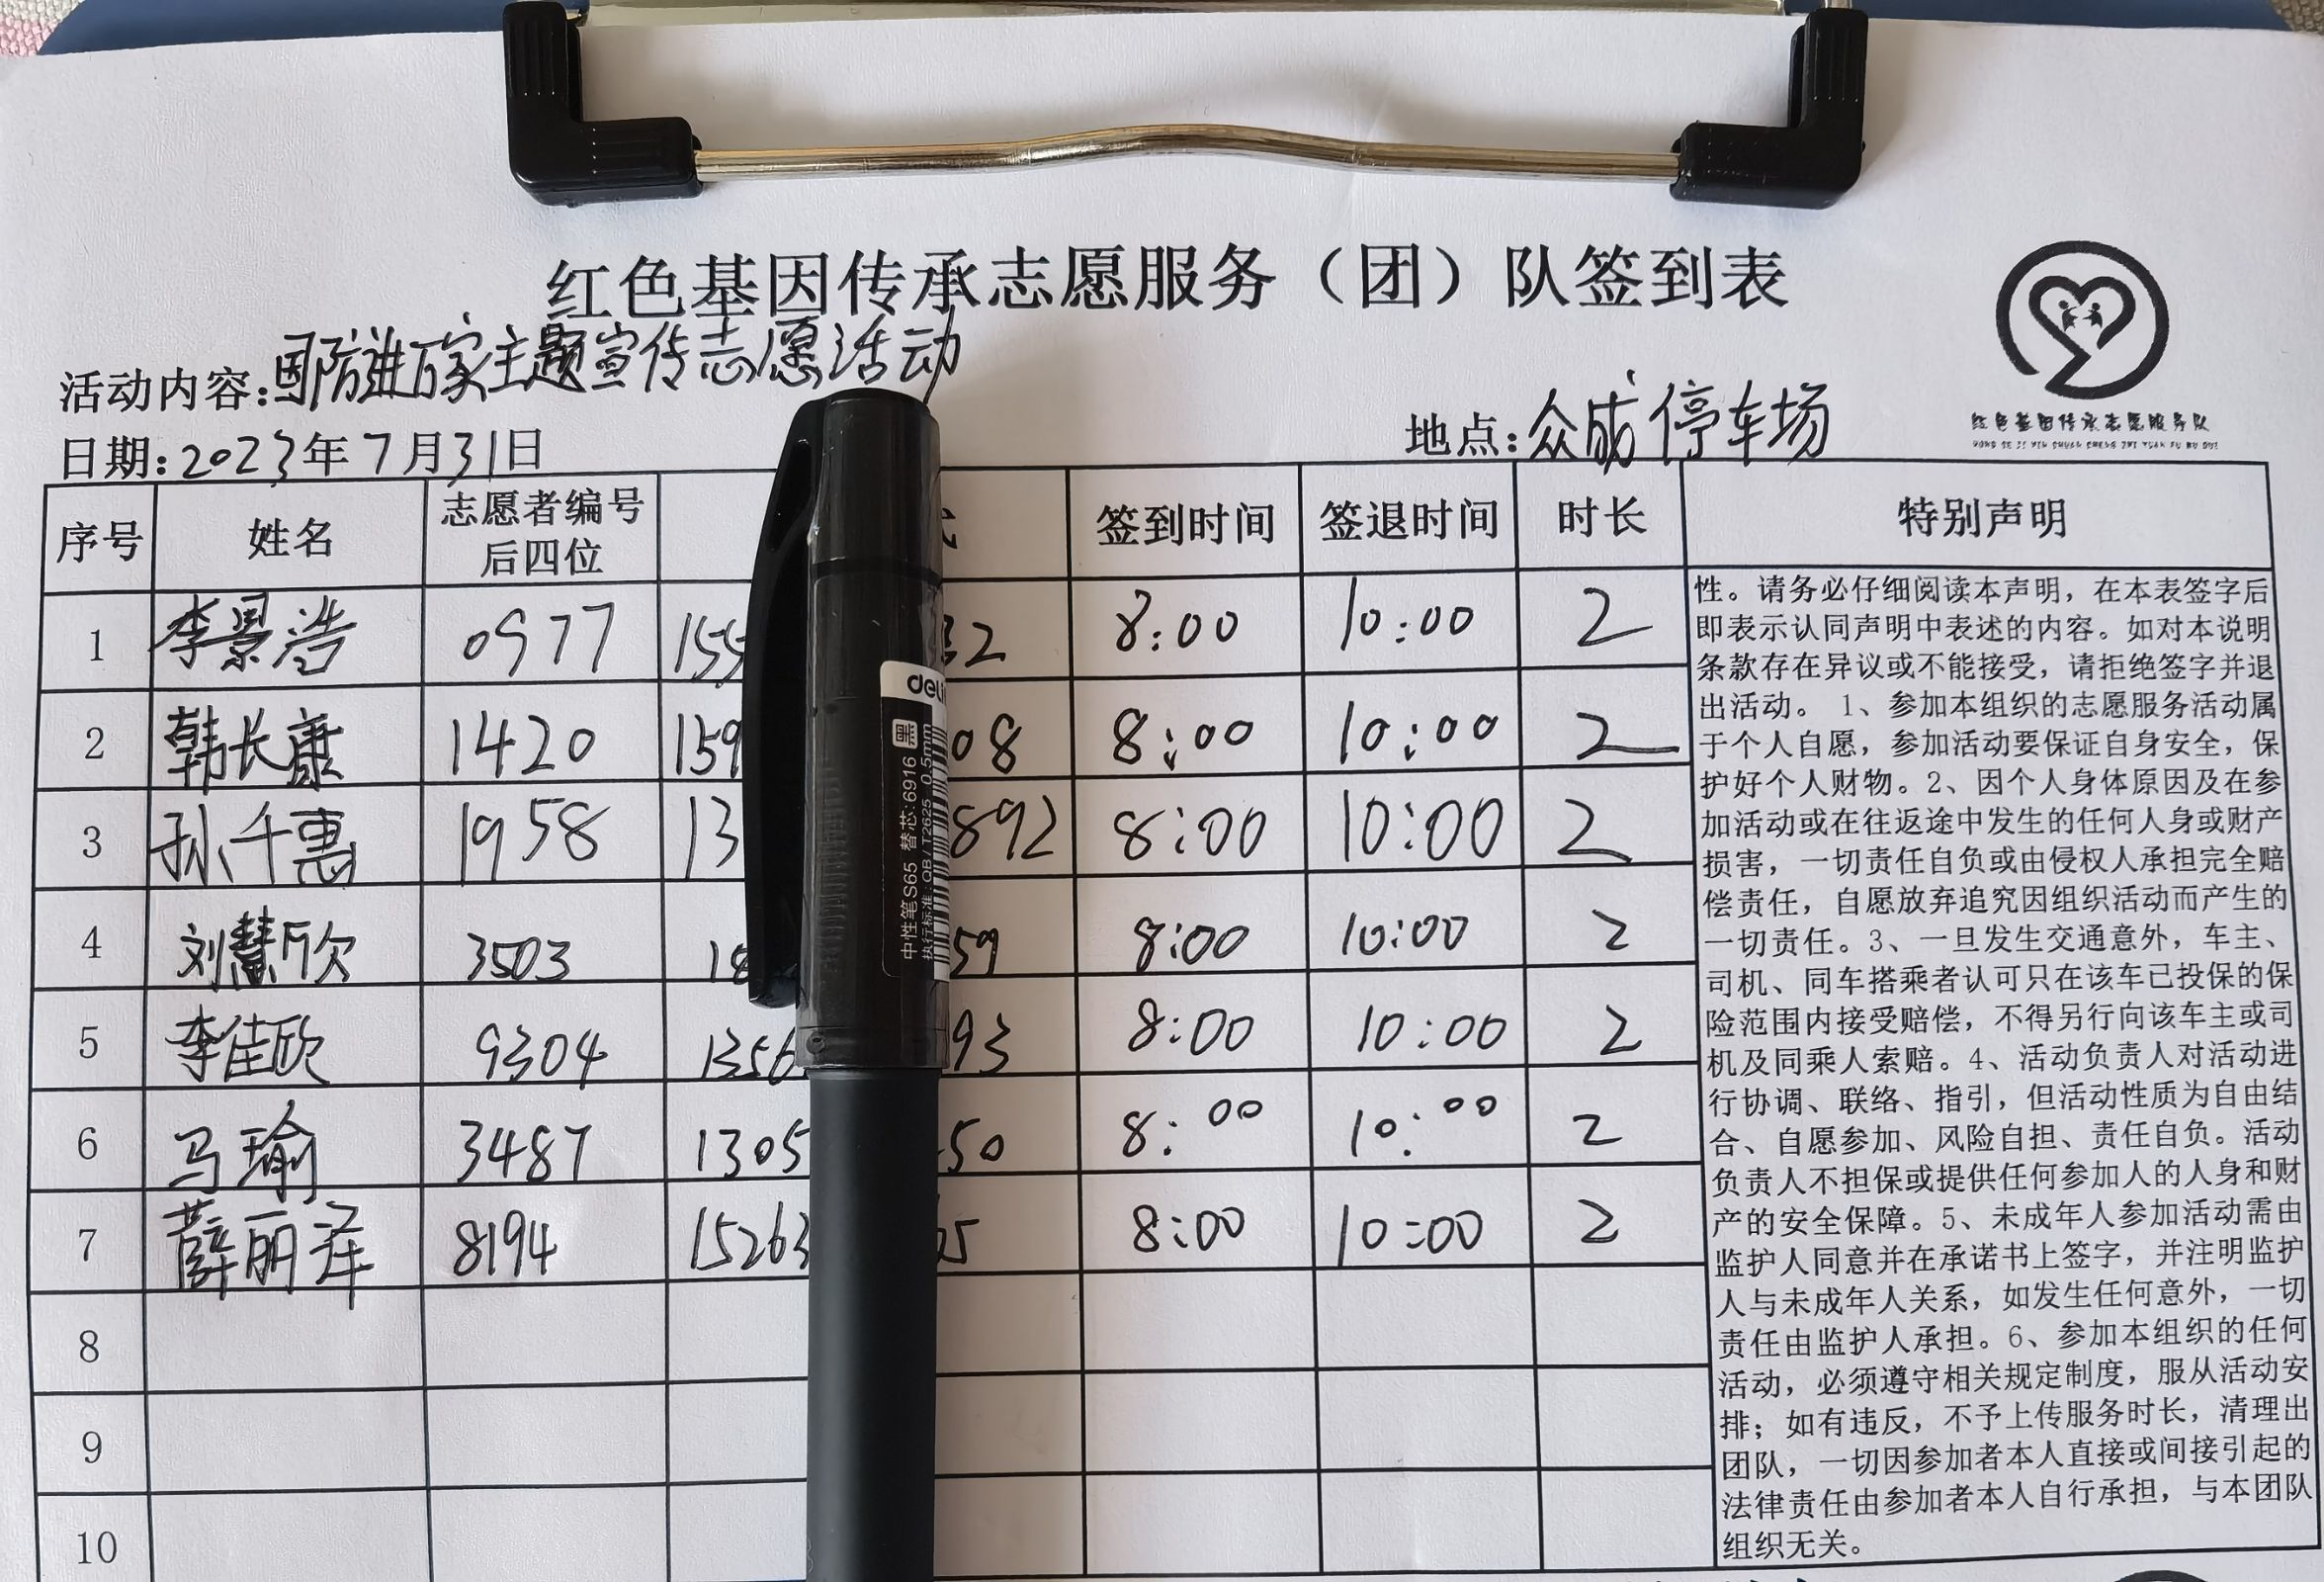 红色基因传承志愿服务（团）队签到表
活动内容:国防进万家主题宣传志愿活动
日期:2023年7月31日
地点:众成停车场
红色基因传承志愿服务队
HONG SE JI YIN CHUAN CHENG ZHI YUAN FU WU DUI
序号 姓名 志愿者编号后四位 签到时间 签退时间 时长 特别声明
1 李景浩 0977 155 32 8:00 10:00 2
2 韩长康 1420 159 08 8:00 10:00 2
3 孙千惠 1958 13 892 8:00 10:00 2
4 刘慧欣 3503 18 59 8:00 10:00 2
5 李佳欣 9304 1356 93 8:00 10:00 2
6 马瑜 3487 1305 50 8:00 10:00 2
7 薛丽泽 8194 15263 5 8:00 10:00 2
8
9
10
性。请务必仔细阅读本声明，在本表签字后
即表示认同声明中表述的内容。如对本说明
条款存在异议或不能接受，请拒绝签字并退
出活动。 1、参加本组织的志愿服务活动属
于个人自愿，参加活动要保证自身安全，保
护好个人财物。2、因个人身体原因及在参
加活动或在往返途中发生的任何人身或财产
损害，一切责任自负或由侵权人承担完全赔
偿责任，自愿放弃追究因组织活动而产生的
一切责任。3、一旦发生交通意外，车主、
司机、同车搭乘者认可只在该车已投保的保
险范围内接受赔偿，不得另行向该车主或司
机及同乘人索赔。4、活动负责人对活动进
行协调、联络、指引，但活动性质为自由结
合、自愿参加、风险自担、责任自负。活动
负责人不担保或提供任何参加人的人身和财
产的安全保障。5、未成年人参加活动需由
监护人同意并在承诺书上签字，并注明监护
人与未成年人关系，如发生任何意外，一切
责任由监护人承担。6、参加本组织的任何
活动，必须遵守相关规定制度，服从活动安
排；如有违反，不予上传服务时长，清理出
团队，一切因参加者本人直接或间接引起的
法律责任由参加者本人自行承担，与本团队
组织无关。
deli
黑
中性笔S65 替芯:6916
执行标准:QB/T2625 0.5mm